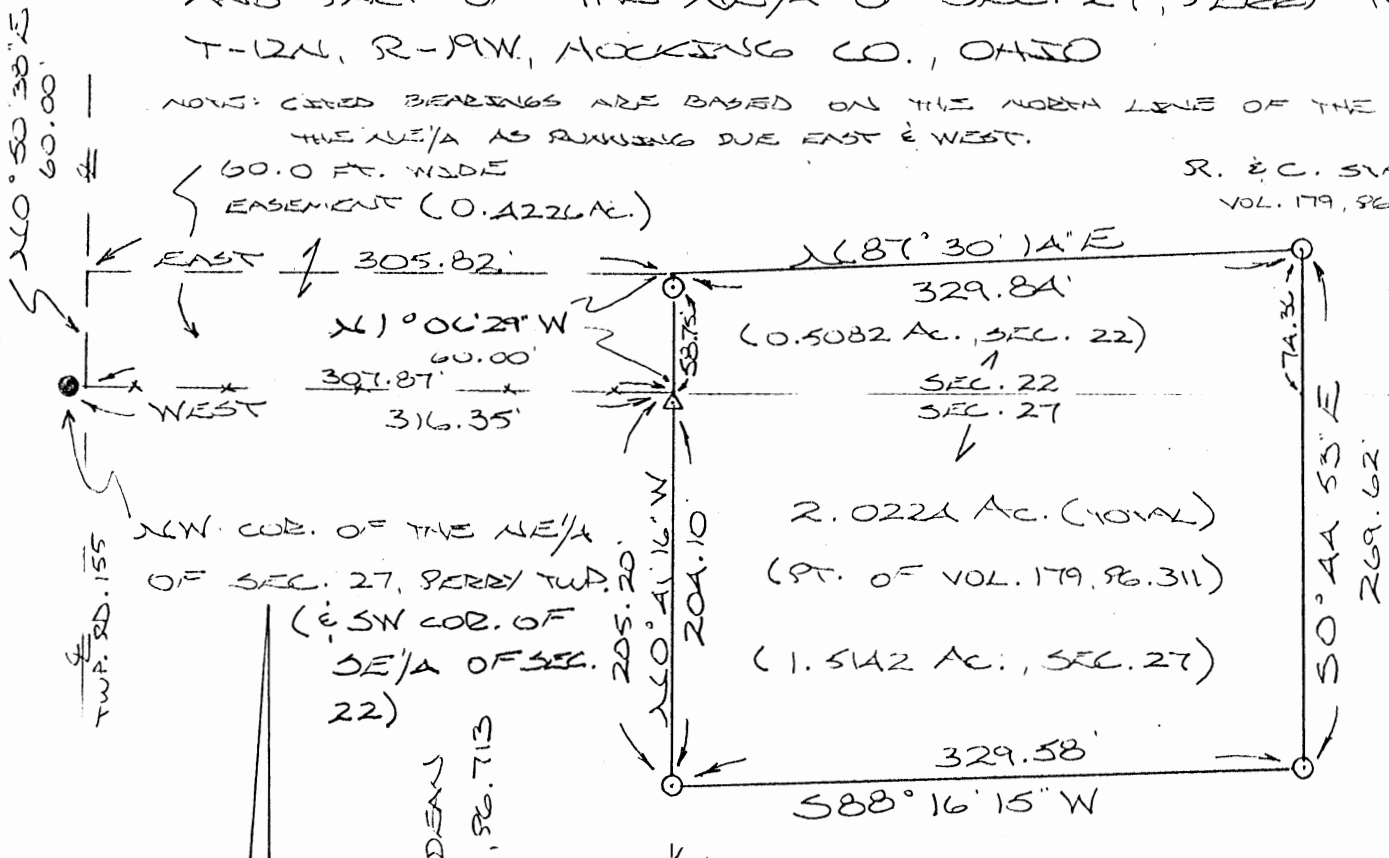 T-12N, R-19W, HOCKING CO., OHIO
NOTE: CITED BEARINGS ARE BASED ON THE NORTH LINE OF THE
THE NE1/4 AS RUNNING DUE EAST & WEST.
N0°50'38"E
60.00'
60.0 FT. WIDE
EASEMENT (0.4226 AC.)
R. & C.
VOL. 179, PG
EAST 305.82'
N87°30'14"E
329.84'
N1°06'29"W
60.00'
58.75'
(0.5082 AC., SEC. 22)
74.36'
307.87'
WEST
316.35'
SEC. 22
SEC. 27
NW. COR. OF THE NE1/4
OF SEC. 27, PERRY TWP.
(& SW COR. OF
SE1/4 OF SEC.
22)
TWP. RD. 155
205.20'
N0°41'16"W
204.10
2.0224 AC. (TOTAL)
(PT. OF VOL. 179, PG. 311)
(1.5142 AC., SEC. 27)
S0°44'53"E
269.62'
329.58'
S88°16'15"W
DEAN
, PG. 713